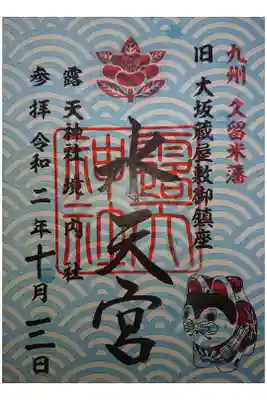 九州 久留米藩
旧 大坂蔵屋敷御鎮座
水天宮
露天神社
露天神社境内社
参拝 令和二年十月三日